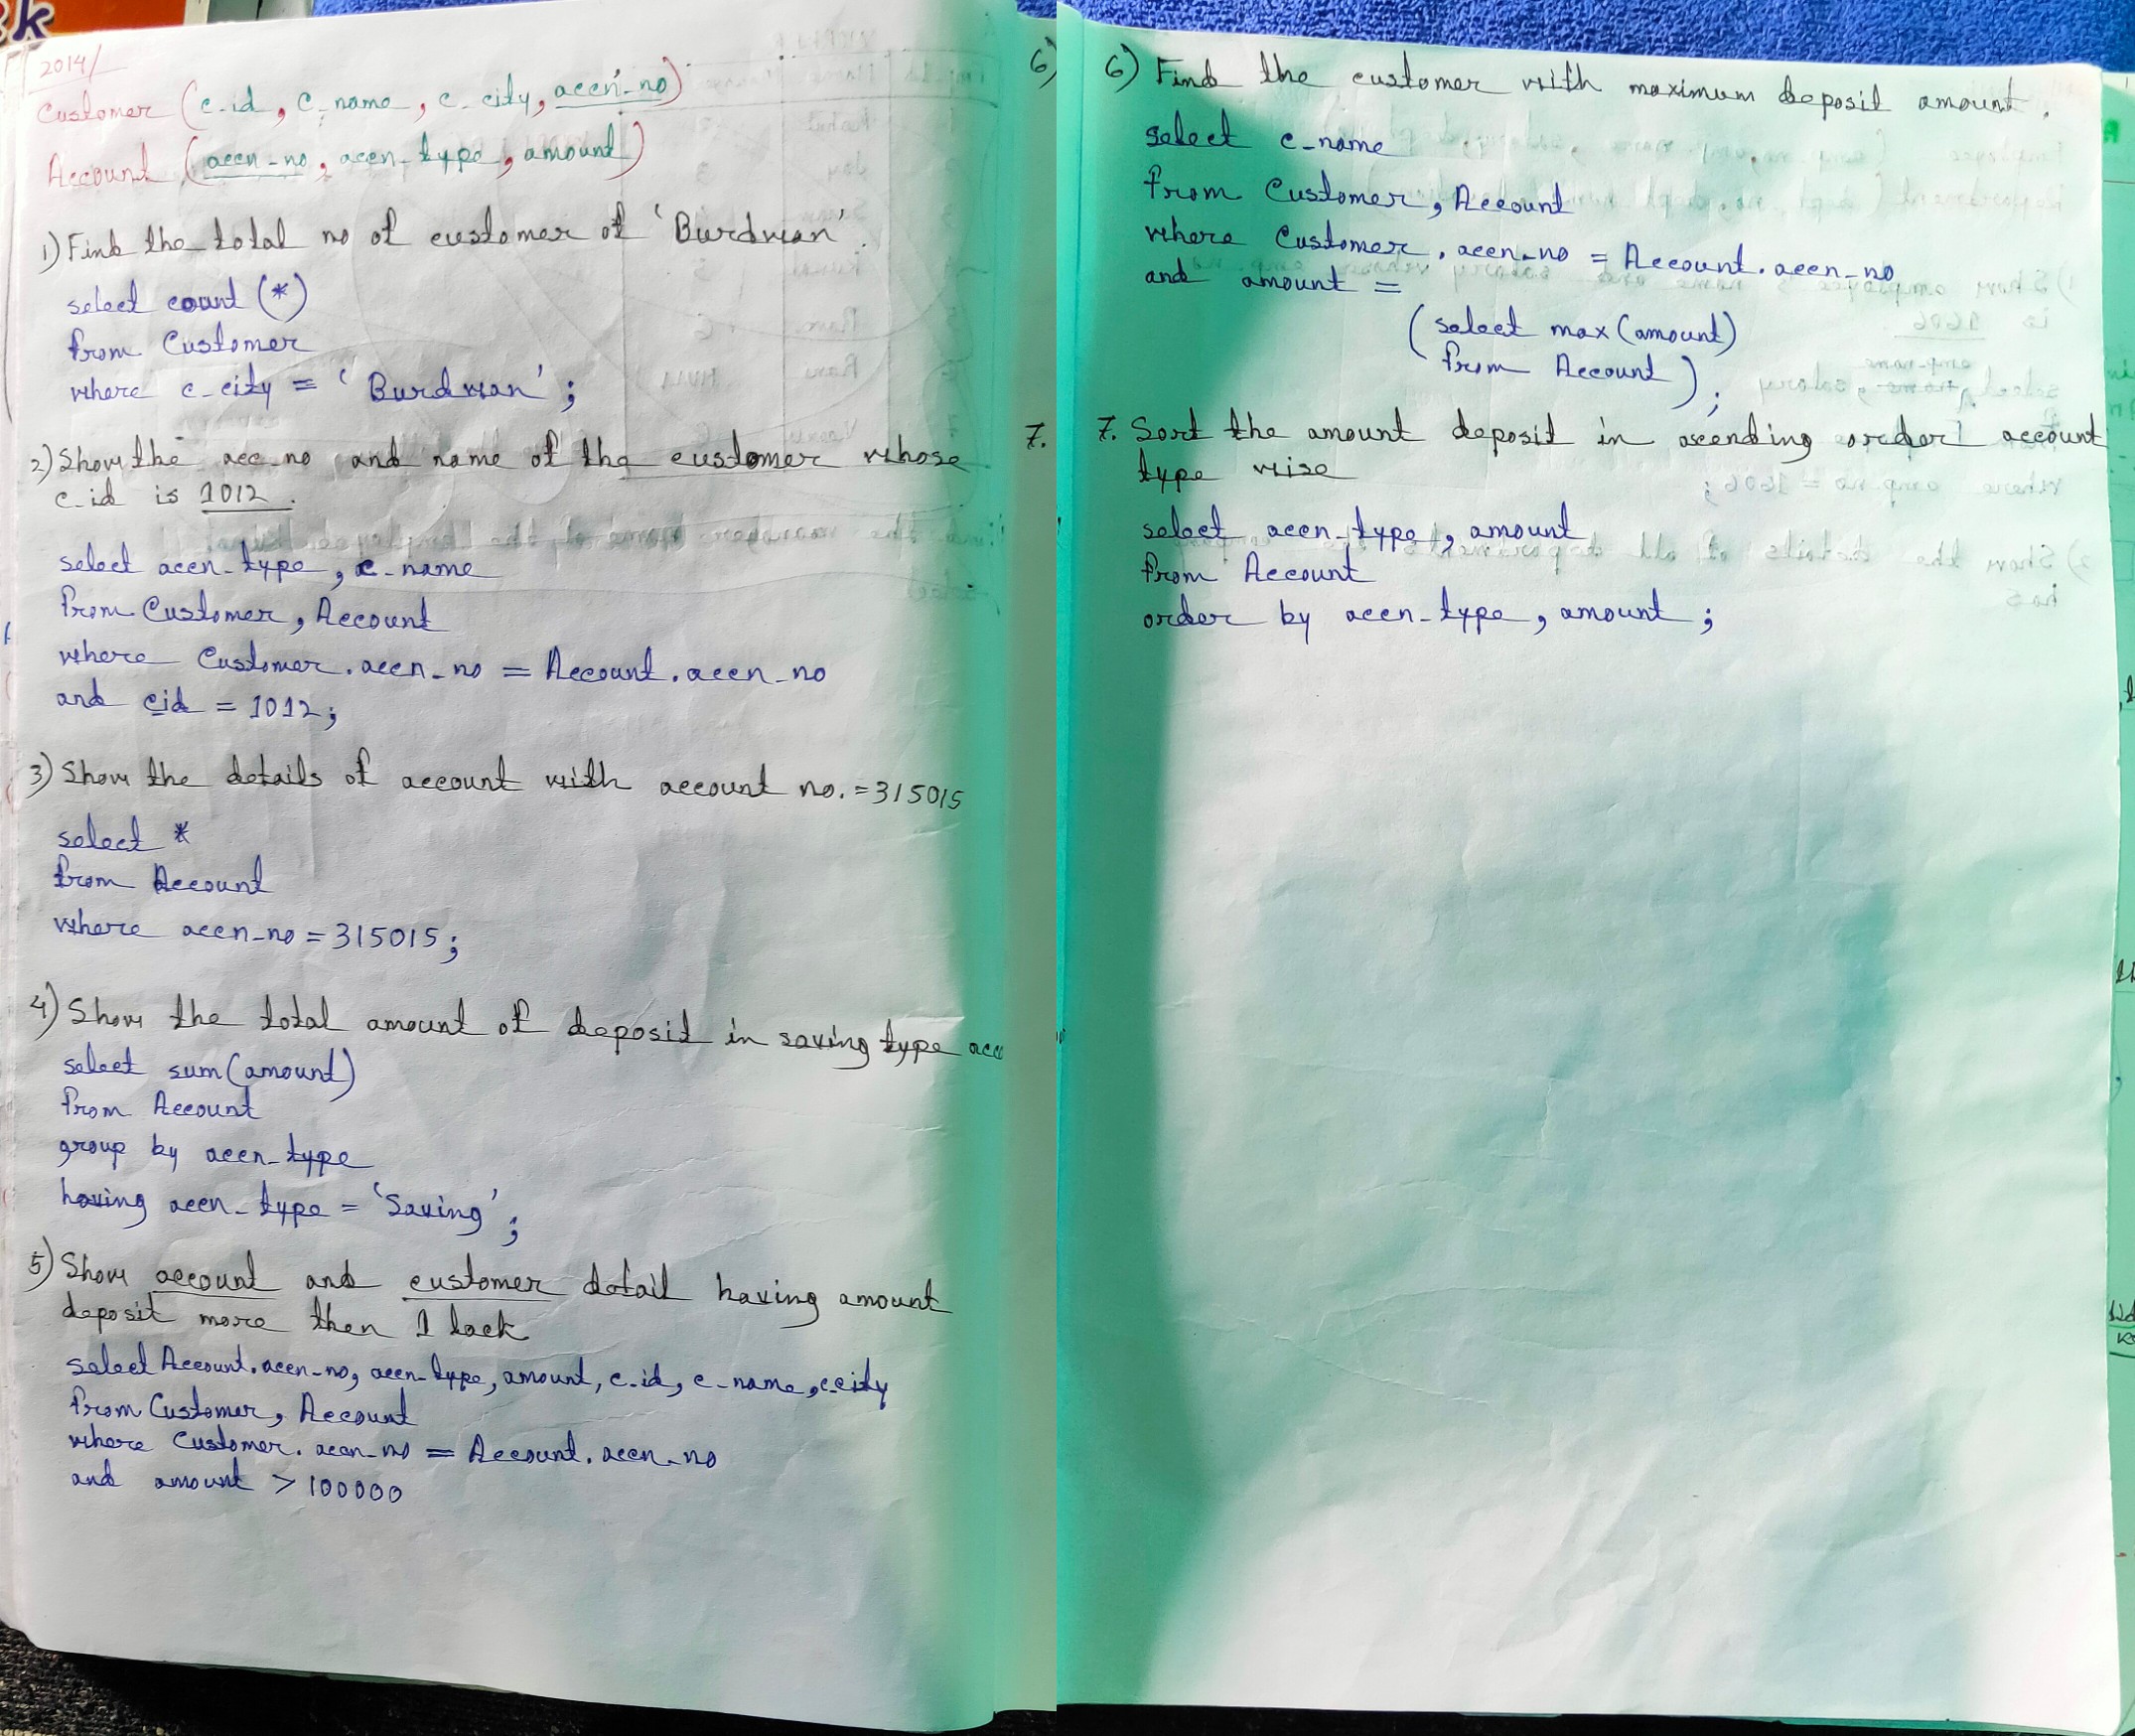 2014/
Customer (c-id, c_name, c-city, accn-no)
Account (accn-no, accn-type, amount)
1) Find the total no of customer of 'Burdwan'.
select count (*)
from Customer
where c-city = 'Burdwan';
2) Show the acc-no and name of the customer whose
c-id is 1012.
select accn-type, c-name
from Customer, Account
where Customer.accn-no = Account.accn-no
and cid = 1012;
3) Show the details of account with account no. = 315015
select *
from Account
where accn-no = 315015;
4) Show the total amount of deposit in saving type acc
select sum(amount)
from Account
group by accn-type
having accn-type = 'Saving';
5) Show account and customer detail having amount
deposit more then 1 lack
select Account.accn-no, accn-type, amount, c-id, c-name, c-city
from Customer, Account
where Customer.accn-no = Account.accn-no
and amount > 100000
6)
7.
6) Find the customer with maximum deposit amount.
select c-name
from Customer, Account
where Customer.accn-no = Account.accn-no
and amount =
(select max(amount)
from Account);
7. Sort the amount deposit in ascending order account
type wise
select accn-type, amount
from Account
order by accn-type, amount;